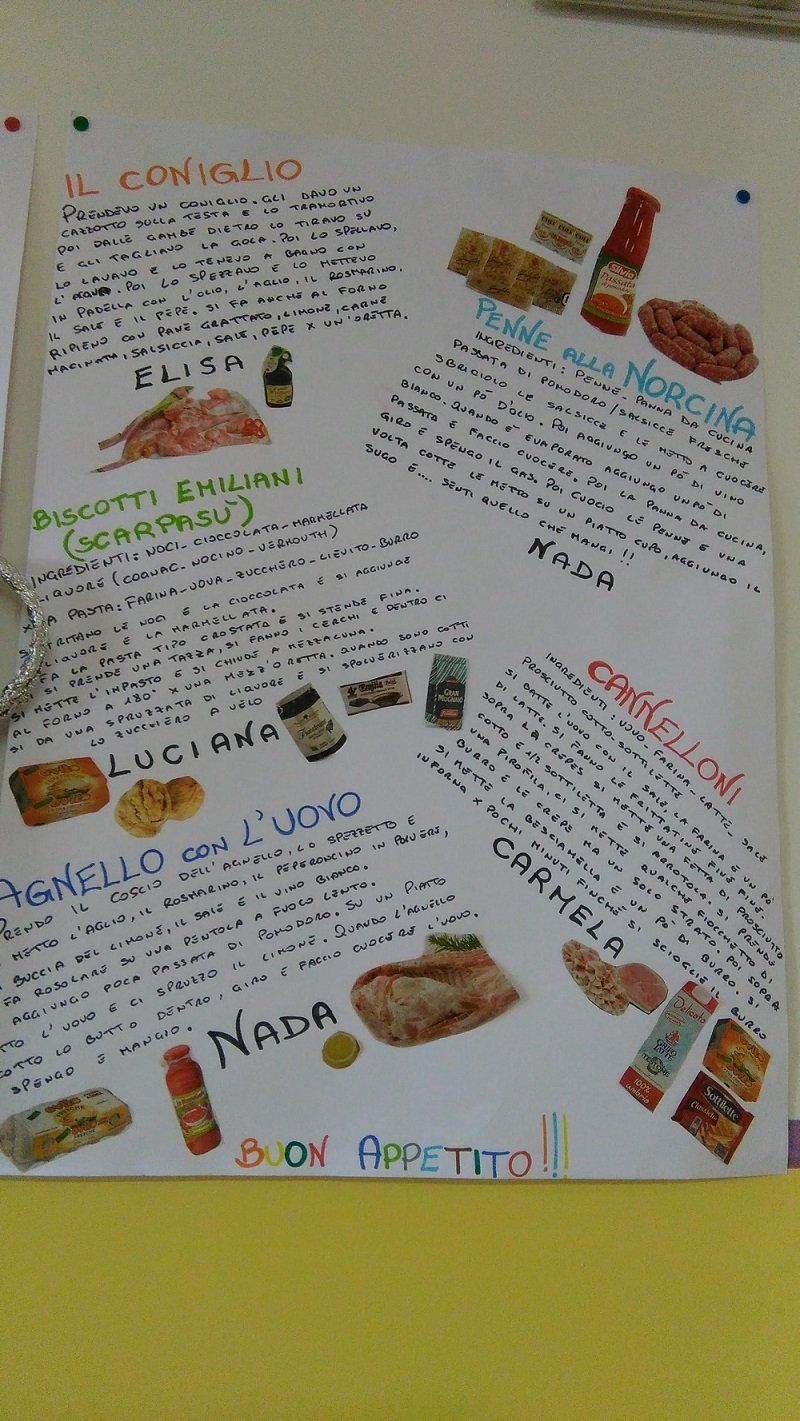 IL CONIGLIO
PRENDEVO UN CONIGLIO. GLI DAVO UN
CAZZOTTO SULLA TESTA E LO TRAMORTIVO
POI DALLE GAMBE DIETRO LO TIRAVO SU
E GLI TAGLIAVO LA GOLA. POI LO SPELLAVO,
LO LAVAVO E LO TENEVO A BAGNO CON
L'ACQUA. POI LO SPEZZAVO E LO METTEVO
IN PADELLA CON L'OLIO, L'AGLIO, IL ROSMARINO,
IL SALE E IL PEPE. SI FA ANCHE AL FORNO
RIPIENO CON PANE GRATTATO, LIMONE, CARNE
MACINATA, SALSICCIA, SALE, PEPE X UN'ORETTA.
ELISA
BISCOTTI EMILIANI
(SCARPASÙ)
INGREDIENTI: NOCI-CIOCCOLATA-MARMELLATA
LIQUORE (COGNAC-NOCINO-VERMOUTH)
X LA PASTA: FARINA-UOVA-ZUCCHERO-LIEVITO-BURRO
SI TRITANO LE NOCI E LA CIOCCOLATA E SI AGGIUNGE
LIQUORE E LA MARMELLATA.
FA LA PASTA TIPO CROSTATA E SI STENDE FINA.
SI PRENDE UNA TAZZA, SI FANNO I CERCHI E DENTRO CI
SI METTE L'IMPASTO E SI CHIUDE A MEZZALUNA.
AL FORNO A 180° X UNA MEZZ'ORETTA. QUANDO SONO COTTI
SI DA UNA SPRUZZATA DI LIQUORE E SI SPOLVERIZZANO CON
LO ZUCCHERO A VELO
LUCIANA
AGNELLO CON L'UOVO
PRENDO IL COSCIO DELL'AGNELLO, LO SPEZZETTO E
METTO L'AGLIO, IL ROSMARINO, IL PEPERONCINO IN POLVERE,
BUCCIA DEL LIMONE, IL SALE E IL VINO BIANCO.
FA ROSOLARE SU UNA PENTOLA A FUOCO LENTO.
AGGIUNGO POCA PASSATA DI POMODORO. SU UN PIATTO
L'UOVO E CI SPRUZZO IL LIMONE. QUANDO L'AGNELLO
COTTO LO BUTTO DENTRO, GIRO E FACCIO CUOCERE L'UOVO.
SPENGO E MANGIO.
NADA
Silvia
Passata
di pomodoro
PENNE ALLA NORCINA
INGREDIENTI: PENNE-PANNA DA CUCINA
PASSATA DI POMODORO/SALSICCE FRESCHE
SBRICIOLO LE SALSICCE E LE METTO A CUOCERE
CON UN PÒ D'OLIO. POI AGGIUNGO UN PÒ DI VINO
BIANCO. QUANDO E' EVAPORATO AGGIUNGO UN PÒ DI
PASSATA E FACCIO CUOCERE. POI LA PANNA DA CUCINA,
GIRO E SPENGO IL GAS. POI CUOCIO LE PENNE E UNA
VOLTA COTTE LE METTO SU UN PIATTO CUPO, AGGIUNGO IL
SUGO E.... SENTI QUELLO CHE MANGI!!
NADA
GRAN
MUGNAIO
CANNELLONI
INGREDIENTI: UOVO-FARINA-LATTE-SALE
PROSCIUTTO COTTO-SOTTILETTE
SI BATTE L'UOVO CON IL SALE, LA FARINA E UN PÒ
DI LATTE. SI FANNO LE FRITTATINE FINE FINE.
SOPRA LA CREPES SI METTE UNA FETTA DI PROSCIUTTO
COTTO E 1/2 SOTTILETTA E SI ARROTOLA. SI PRENDE
UNA PIROFILA, CI SI METTE QUALCHE FIOCCHETTO DI
BURRO E LE CREPES MA UN SOLO STRATO. POI SOPRA
SI METTE LA BESCIAMELLA E UN PÒ DI BURRO. SI
INFORNA X POCHI MINUTI FINCHÈ SI SCIOGLIE IL BURRO
CARMELA
Delicato
GRIFO
LATTE
100%
umbria
Sottilette
Classiche
BUON APPETITO!!!